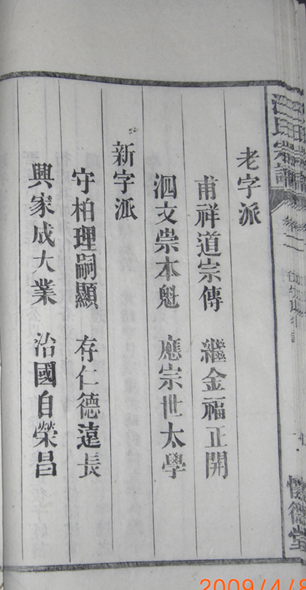 老字派
甫祥道宗傳 繼金福正開
泗文崇本魁 應宗世太學
新字派
守柏理嗣顯 存仁德遠長
興家成大業 治國自榮昌
氏宗譜
卷
堂
2009/4/8